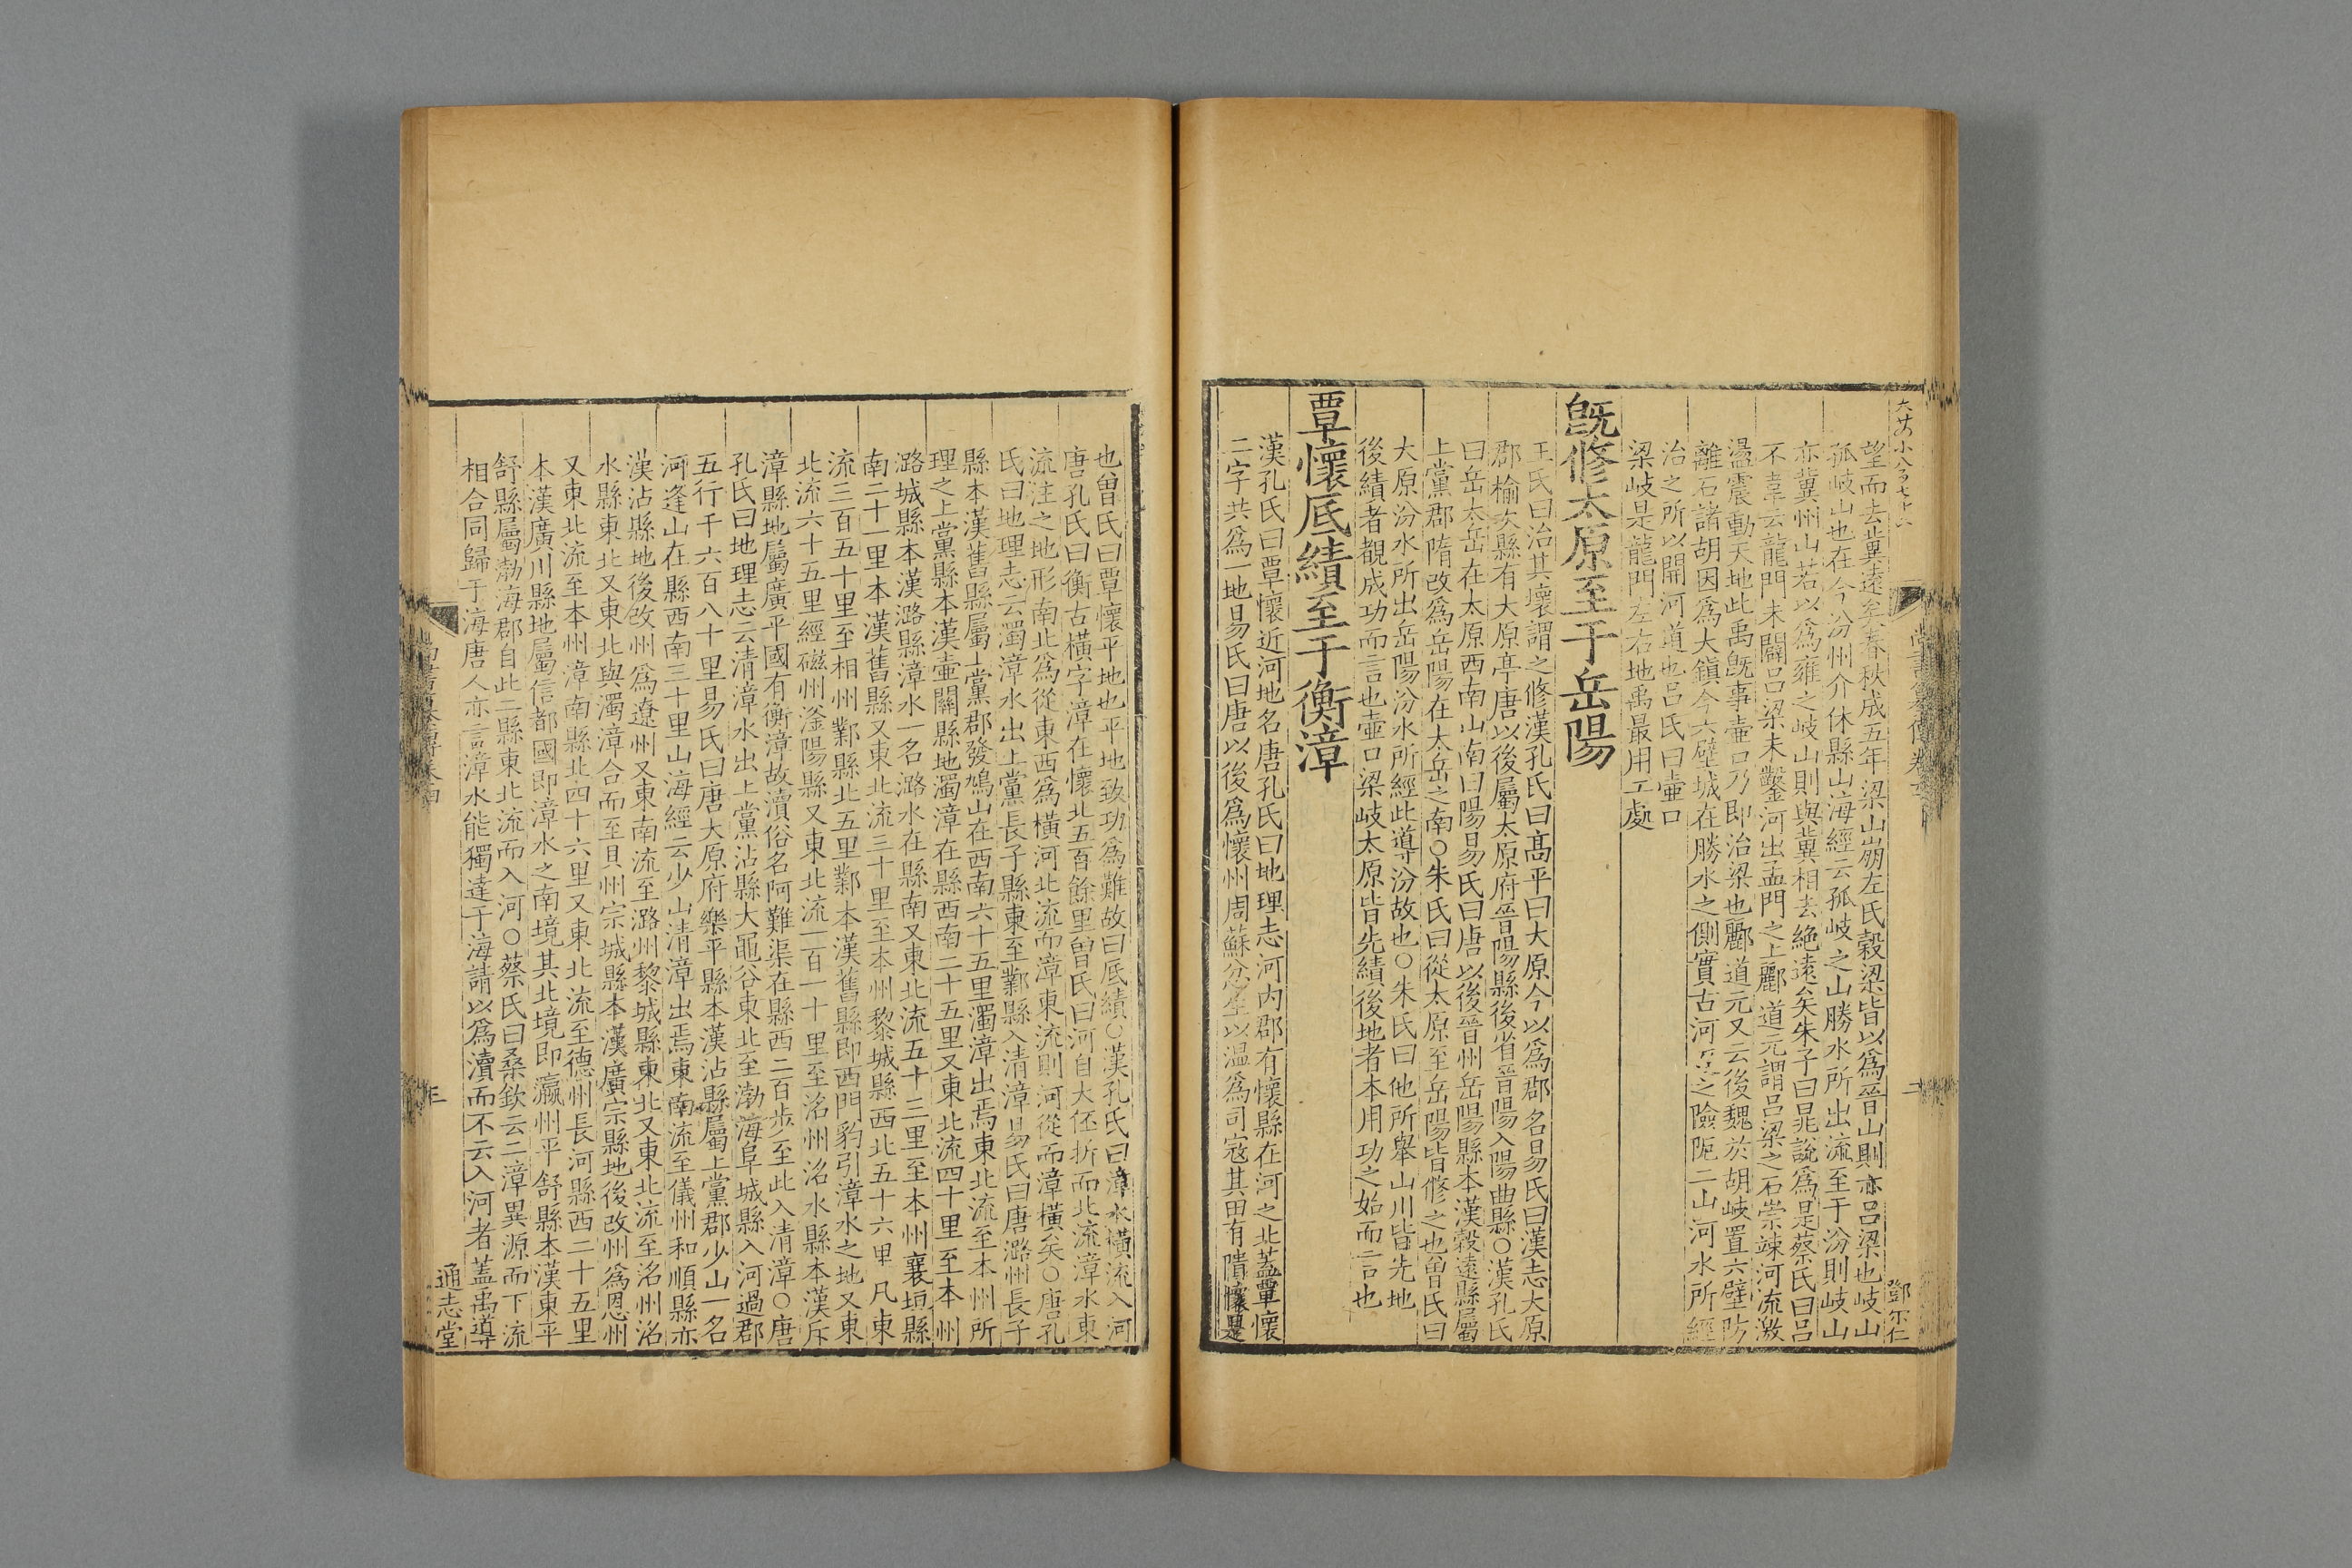 望而去冀遠矣春秋成五年梁山崩左氏穀梁皆以爲晉山則亦呂梁也岐山
孤岐山也在今汾州介休縣山海經云孤岐之山勝水所出流至于汾則岐山
亦冀州山若以爲雍之岐山則與冀相去絶遠矣朱子曰晁說爲是蔡氏曰呂
不韋云龍門未闢呂梁未鑿河出孟門之上酈道元謂呂梁之石崇竦河流激
盪震動天地此禹旣事壺口乃即治梁也酈道元又云後魏於胡岐置六壁防
離石諸胡因爲大鎮今六壁城在勝水之側實古河之險阨二山河水所經
治之所以開河道也呂氏曰壺口
梁岐是龍門左右地禹最用工處
旣修太原至于岳陽
王氏曰治其壞謂之修漢孔氏曰高平曰大原今以爲郡名易氏曰漢志大原
郡榆次縣有大原亭唐以後屬太原府晉陽縣後省晉陽入陽曲縣○漢孔氏
曰岳太岳在太原西南山南曰陽易氏曰唐以後晉州岳陽縣本漢穀遠縣屬
上黨郡隋改爲岳陽在太岳之南○朱氏曰從太原至岳陽皆修之也曾氏曰
大原汾水所出岳陽汾水所經此導汾故也○朱氏曰他所舉山川皆先地
後績者觀成功而言也壺口梁岐太原皆先績後地者本用功之始而言也
覃懷底績至于衡漳
漢孔氏曰覃懷近河地名唐孔氏曰地理志河内郡有懷縣在河之北蓋覃懷
二字共爲一地易氏曰唐以後爲懷州周蘇忿生以温爲司寇其田有隤懷是
鄧尔仁
也曾氏曰覃懷平地也平地致功爲難故曰底績○漢孔氏曰漳水橫流入河
唐孔氏曰衡古橫字漳在懷北五百餘里曾氏曰河自大伾折而北流漳水東
流注之地形南北爲從東西爲橫河北流而漳東流則河從而漳橫矣○唐孔
氏曰地理志云濁漳水出上黨長子縣東至鄴縣入清漳易氏曰唐潞州長子
縣本漢舊縣屬上黨郡發鳩山在西南六十五里濁漳出焉東北流至本州所
理之上黨縣本漢壺關縣地濁漳在縣西南二十五里又東北流四十里至本州
潞城縣本漢潞縣漳水一名潞水在縣南又東北流五十三里至本州襄垣縣
南二十一里本漢舊縣又東北流三十里至本州黎城縣西北五十六里凡東
流三百五十里至相州鄴縣北五里鄴本漢舊縣即西門豹引漳水之地又東
北流六十五里經磁州滏陽縣又東北流一百一十里至洺州洺水縣本漢斥
漳縣地屬廣平國有衡漳故瀆俗名阿難渠在縣西二百步至此入清漳○唐
孔氏曰地理志云清漳水出上黨沾縣大黽谷東北至渤海阜城縣入河過郡
五行千六百八十里易氏曰唐大原府樂平縣本漢沾縣屬上黨郡少山一名
河逢山在縣西南三十里山海經云少山清漳出焉東南流至儀州和順縣亦
漢沾縣地後改州爲遼州又東南流至潞州黎城縣東北又東北流至洺州洺
水縣東北又東北與濁漳合而至貝州宗城縣本漢廣宗縣地後改州爲恩州
又東北流至本州漳南縣北四十六里又東北流至德州長河縣西二十五里
本漢廣川縣地屬信都國即漳水之南境其北境即瀛州平舒縣本漢東平
舒縣屬渤海郡自此二縣東北流而入河○蔡氏曰桑欽云二漳異源而下流
相合同歸于海唐人亦言漳水能獨達于海請以爲瀆而不云入河者蓋禹導
通志堂